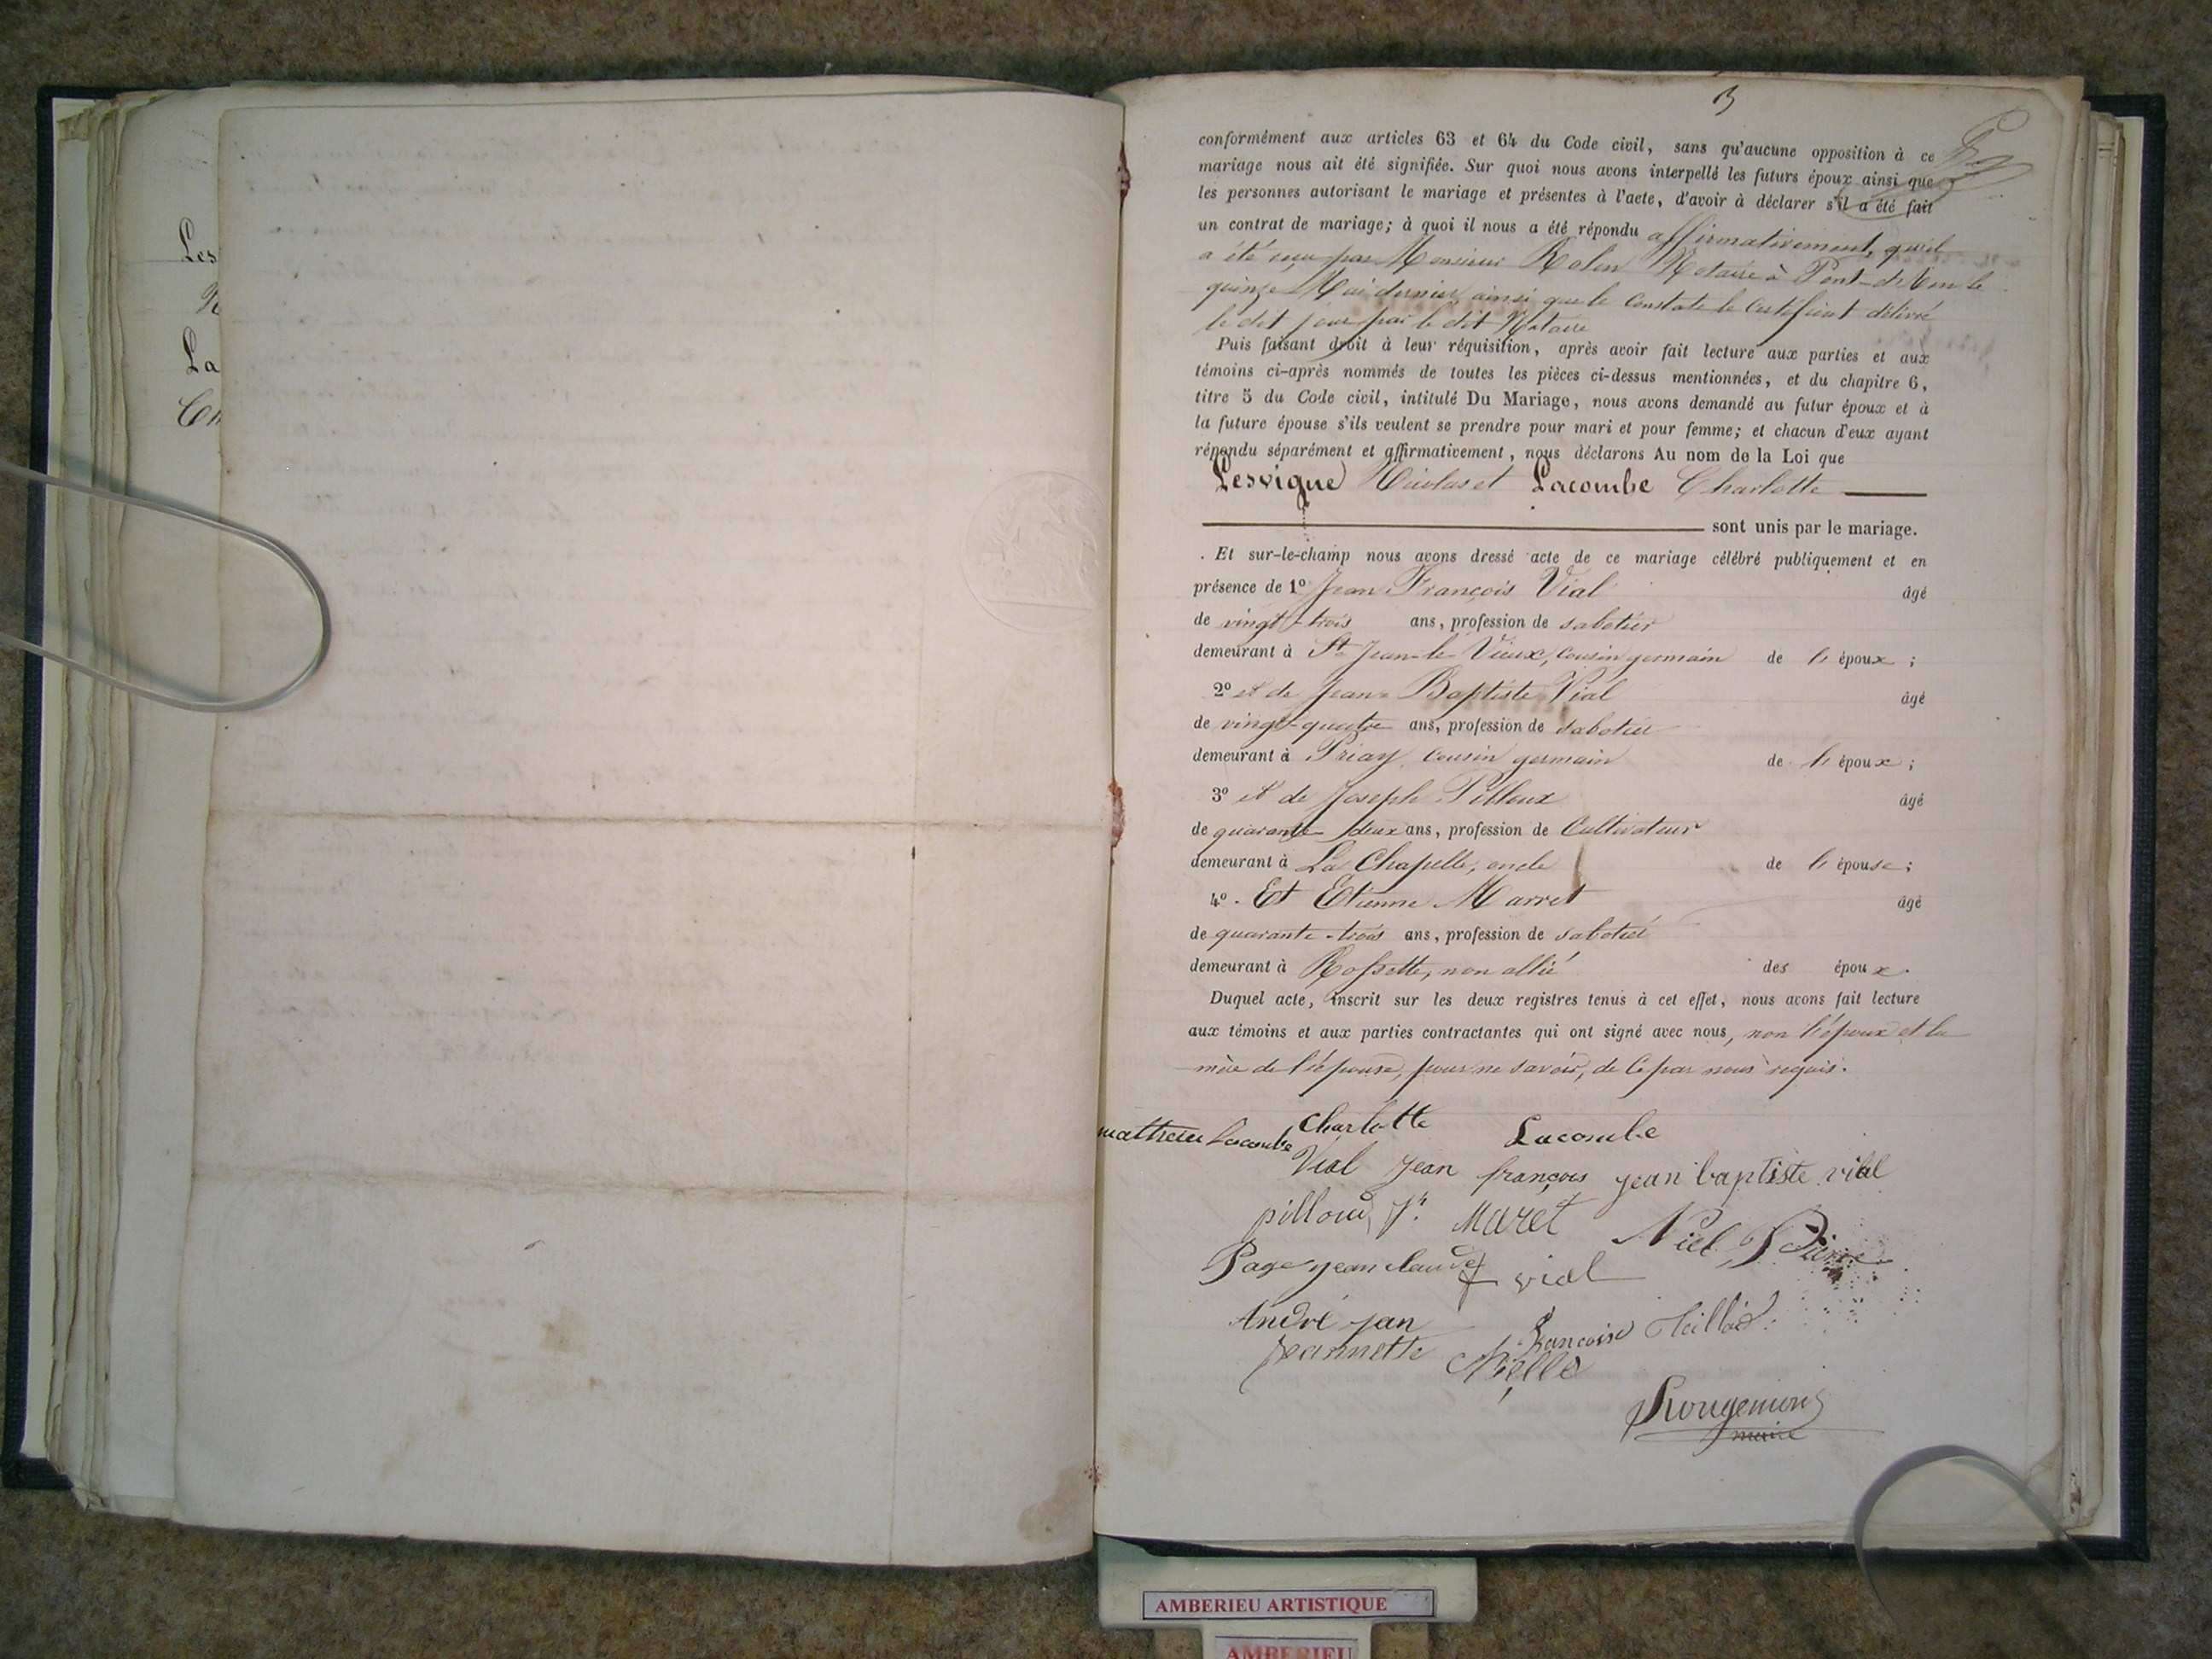 Les
N
La
Ch
3
conformément aux articles 63 et 64 du Code civil, sans qu'aucune opposition à ce
mariage nous ait été signifiée. Sur quoi nous avons interpellé les futurs époux ainsi que
les personnes autorisant le mariage et présentes à l'acte, d'avoir à déclarer s'il a été fait
un contrat de mariage; à quoi il nous a été répondu affirmativement, qu'il
a été reçu par Monsieur Rolin Notaire à Pont-d'Ain le
quinze Mai dernier, ainsi que le constate le certificat délivré
le dit jour par le dit Notaire
Puis faisant droit à leur réquisition, après avoir fait lecture aux parties et aux
témoins ci-après nommés de toutes les pièces ci-dessus mentionnées, et du chapitre 6,
titre 5 du Code civil, intitulé Du Mariage, nous avons demandé au futur époux et à
la future épouse s'ils veulent se prendre pour mari et pour femme; et chacun d'eux ayant
répondu séparément et affirmativement, nous déclarons Au nom de la Loi que
Lesvigne Nicolas et Lacombe Charlotte
sont unis par le mariage.
Et sur-le-champ nous avons dressé acte de ce mariage célébré publiquement et en
présence de 1º Jean François Vial âgé
de vingt-trois ans, profession de sabotier
demeurant à St Jean-le Vieux, cousin germain de l'époux;
2º et de Jean-Baptiste Vial âgé
de vingt-quatre ans, profession de sabotier
demeurant à Priay, cousin germain de l'époux;
3º et de Joseph Pilloux âgé
de quarante-deux ans, profession de Cultivateur
demeurant à La Chapelle, oncle de l'épouse;
4º. Et Etienne Marret âgé
de quarante-trois ans, profession de sabotier
demeurant à Rossette, non allié des époux.
Duquel acte, inscrit sur les deux registres tenus à cet effet, nous avons fait lecture
aux témoins et aux parties contractantes qui ont signé avec nous, non l'époux et la
mère de l'épouse, pour ne savoir, de ce par nous requis.
mathieu Lacombe Charlotte Lacombe
Vial jean françois jean baptiste vial
pilloud Jh. Maret Niel Pierre
Page jean claude f vial
André jan
Françoise
Jeannette Nielle
Rougemont
maire
AMBERIEU ARTISTIQUE
AMBERIEU